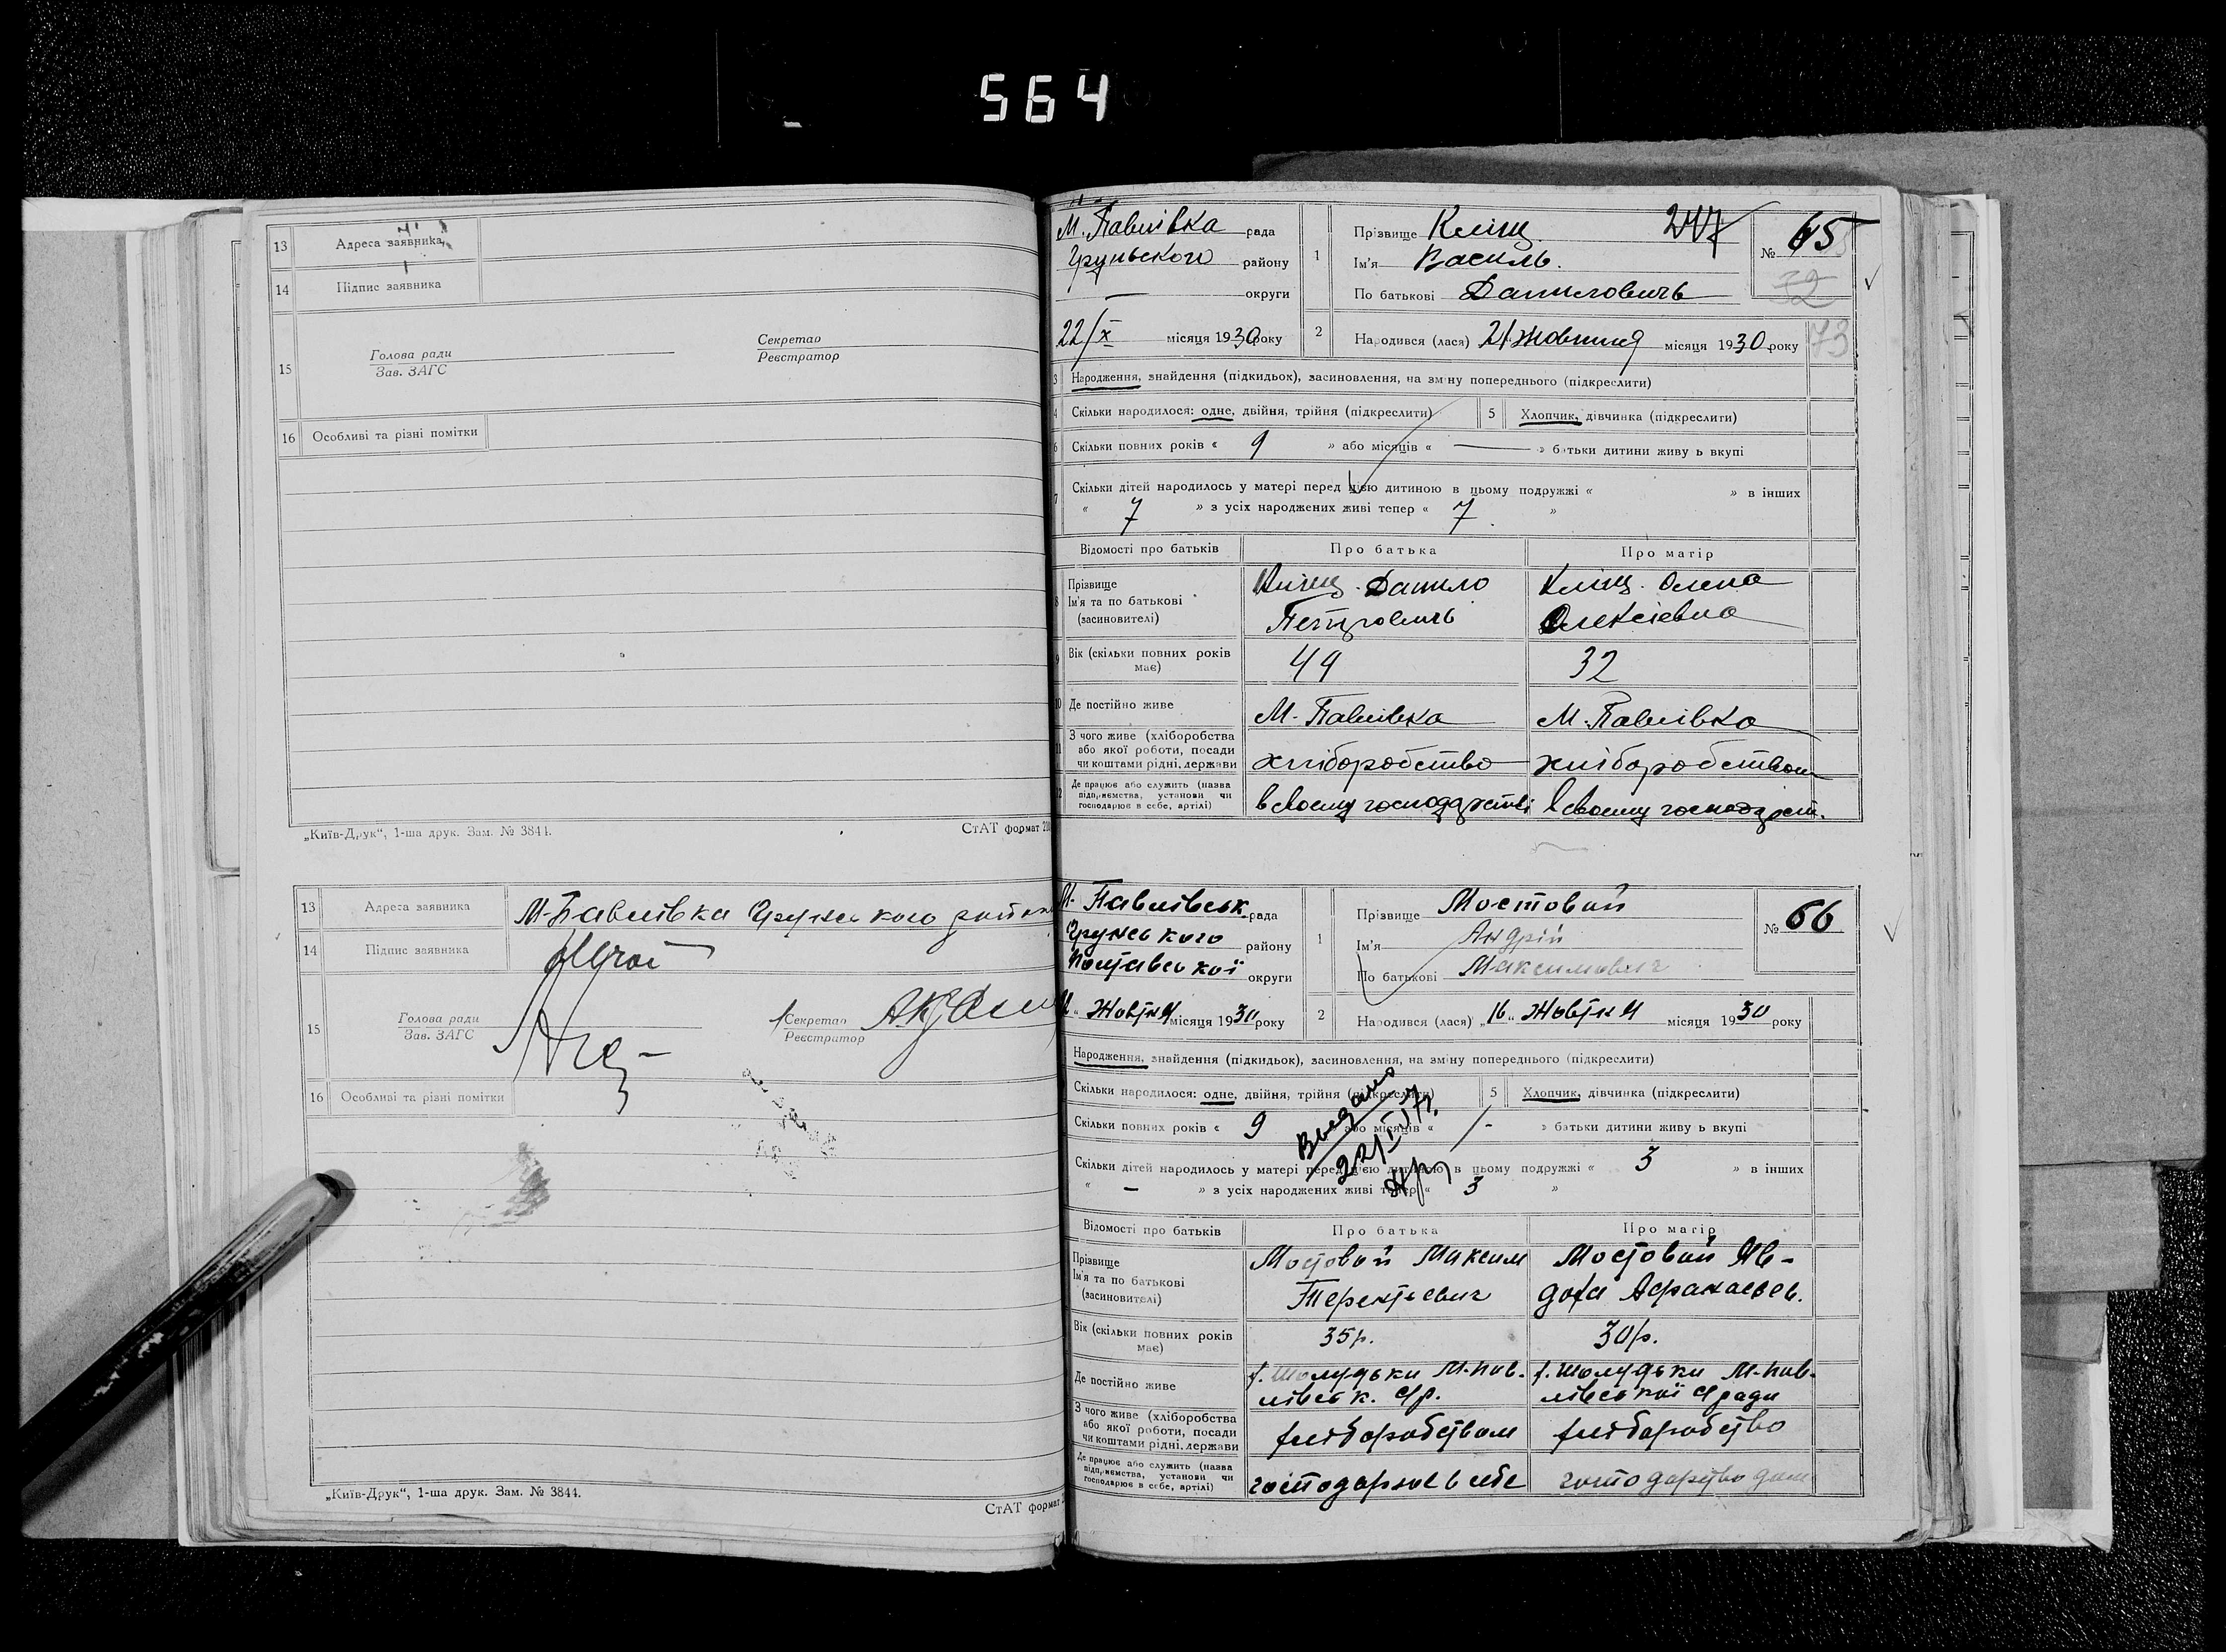 564
13 Адреса заявника
14 Підпис заявника
15 Голова ради
Зав. ЗАГС
Секретар
Реєстратор
16 Особливі та різні помітки
„Київ-Друк“, 1-ша друк. Зам. № 3844.
СтАТ формат
13 Адреса заявника М-Павлівка Грунського району
14 Підпис заявника
15 Голова ради
Зав. ЗАГС
Секретар
Реєстратор
16 Особливі та різні помітки
„Київ-Друк“, 1-ша друк. Зам. № 3844.
СтАТ формат
М. Павлівка рада
Грунського району
— округи
22/X місяця 1930 року
1 Прізвище Кліщ 247
Ім'я Василь.
По батькові Даниловичь
№ 65
32
73
2 Народився (лася) 21 Жовтня місяця 1930 року
3 Народження, знайдення (підкидьок), засиновлення, на зміну попереднього (підкреслити)
4 Скільки народилося: одне, двійня, трійня (підкреслити) 5 Хлопчик, дівчинка (підкреслити)
6 Скільки повних років « 9 » або місяців « — » батьки дитини живуть вкупі
7 Скільки дітей народилось у матері перед цією дитиною в цьому подружжі « » в інших
« 7 » з усіх народжених живі тепер « 7. »
Відомості про батьків Про батька Про матір
8 Прізвище
Ім'я та по батькові
(засиновителі)
Кліщ. Данило
Петровичь
Кліщ. Олена
Олексієвна
9 Вік (скільки повних років
має)
49 32
10 Де постійно живе М. Павлівка М. Павлівка
11 З чого живе (хліборобства
або якої роботи, посади
чи коштами рідні, держави
хліборобство хліборобством
12 Де працює або служить (назва
підприємства, установи чи
господарює в себе, артілі)
в своему господарстві в своему господарст.
М. Павлівськ рада
Грунського району
Полтавської округи
Жовтня місяця 1930 року
1 Прізвище Мостовий
Ім'я Андрій
По батькові Максимович
№ 66
2 Народився (лася) „16„ Жовтня місяця 1930 року
Народження, знайдення (підкидьок), засиновлення, на зміну попереднього (підкреслити)
Скільки народилося: одне, двійня, трійня (підкреслити) 5 Хлопчик, дівчинка (підкреслити)
Скільки повних років « 9 » або місяців « - » батьки дитини живуть вкупі
22/IV 71.
Скільки дітей народилось у матері перед цією дитиною в цьому подружжі « 3 » в інших
« — » з усіх народжених живі тепер « 3 »
Відомості про батьків Про батька Про матір
Прізвище
Ім'я та по батькові
(засиновителі)
Мостовий Максим
Терентьевич
Мостовий Яв-
доха Афанасьев.
Вік (скільки повних років
має)
35р. 30р.
Де постійно живе
х. Шолудьки М-Пав-
лівськ. с/р.
х. Шолудьки М-Пав-
лівської с/ради
З чого живе (хліборобства
або якої роботи, посади
чи коштами рідні, держави
хліборобством хліборобство
Де працює або служить (назва
підприємства, установи чи
господарює в себе, артілі)
господарює в себе господарство